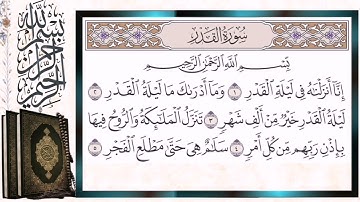 سُورَةُ القَدْرِ
بِسْمِ اللَّهِ الرَّحْمَٰنِ الرَّحِيمِ
إِنَّا أَنزَلْنَٰهُ فِى لَيْلَةِ ٱلْقَدْرِ ١ وَمَآ أَدْرَىٰكَ مَا لَيْلَةُ ٱلْقَدْرِ ٢
لَيْلَةُ ٱلْقَدْرِ خَيْرٌ مِّنْ أَلْفِ شَهْرٍ ٣ تَنَزَّلُ ٱلْمَلَٰٓئِكَةُ وَٱلرُّوحُ فِيهَا
بِإِذْنِ رَبِّهِم مِّن كُلِّ أَمْرٍ ٤ سَلَٰمٌ هِىَ حَتَّىٰ مَطْلَعِ ٱلْفَجْرِ ٥
بسم الله الرحمن الرحيم